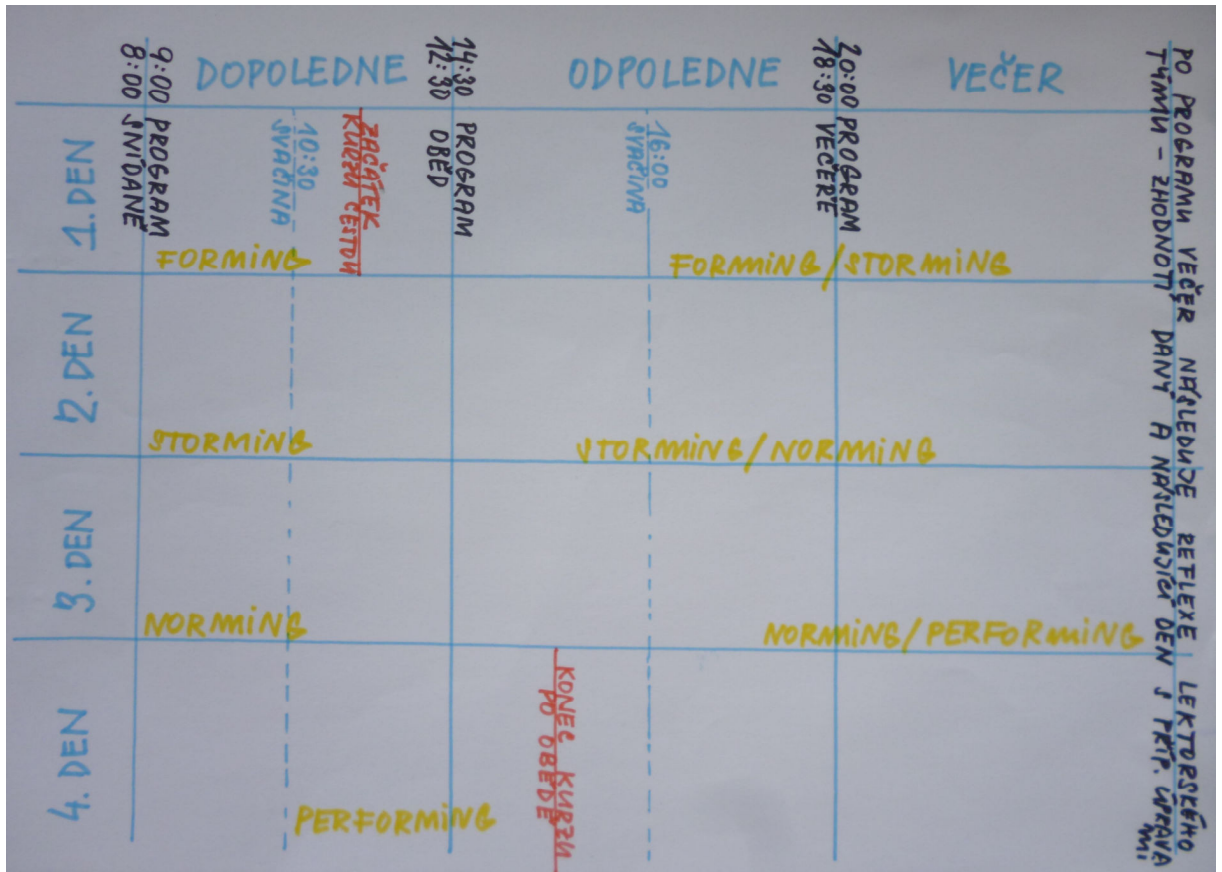 DOPOLEDNE
ODPOLEDNE
VEČER
8:00 SNÍDANĚ
9:00 PROGRAM
10:30
SVAČINA
ZAČÁTEK
KURZU CESTOU
12:30 OBĚD
14:30 PROGRAM
16:00
SVAČINA
18:30 VEČEŘE
20:00 PROGRAM
1. DEN
FORMING
FORMING/STORMING
2. DEN
STORMING
STORMING/NORMING
3. DEN
NORMING
NORMING/PERFORMING
4. DEN
PERFORMING
KONEC KURZU
PO OBĚDĚ
PO PROGRAMU VEČER NÁSLEDUJE REFLEXE LEKTORSKÉHO
TÝMU - ZHODNOTÍ DANÝ A NÁSLEDUJÍCÍ DEN S PŘÍP. ÚPRAVA
MI